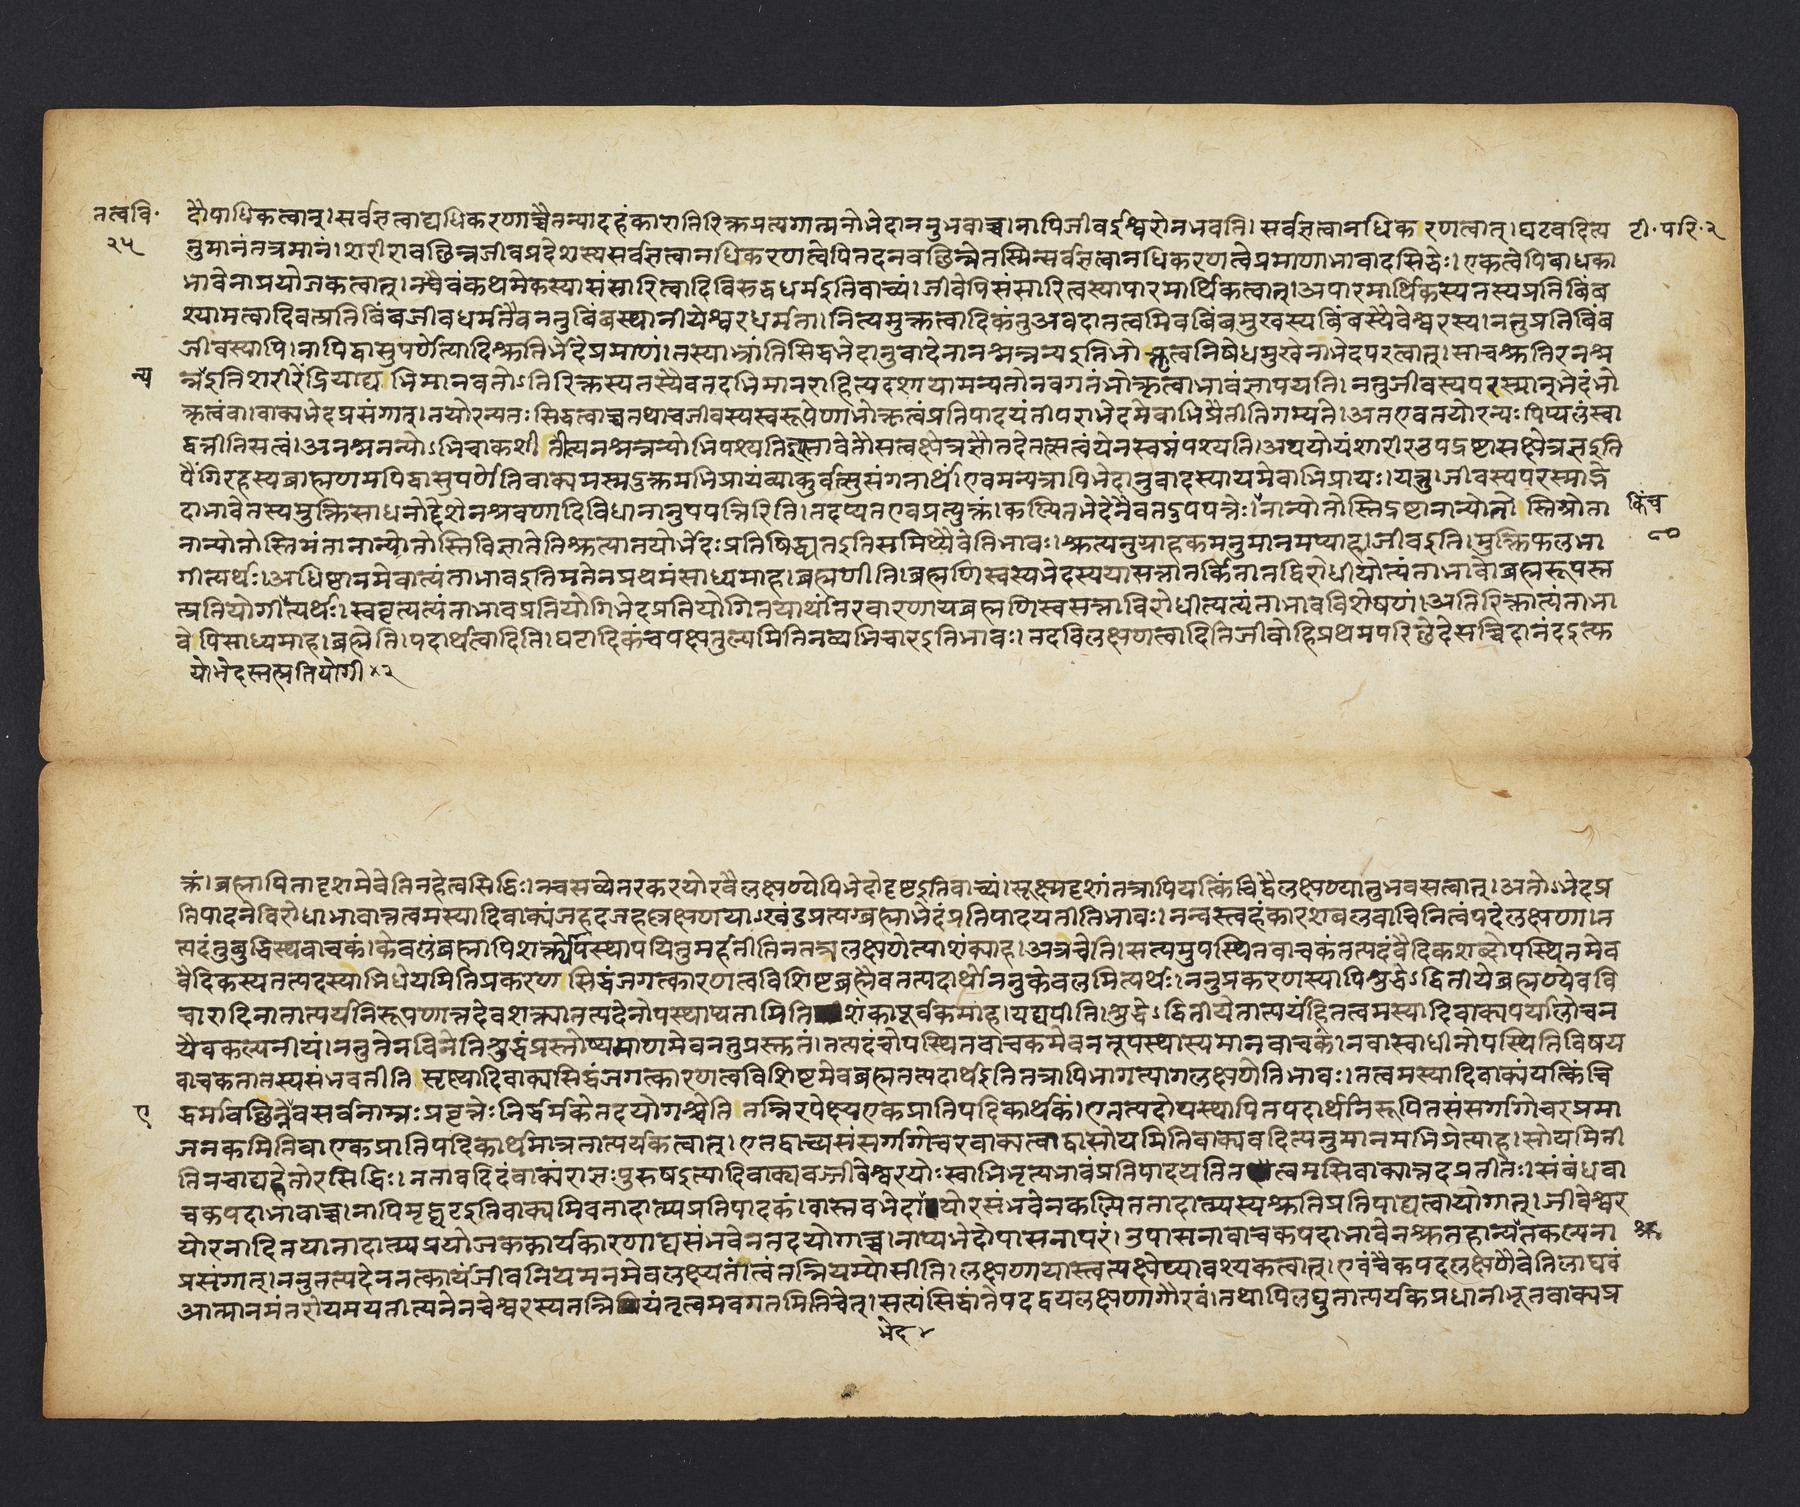 तत्ववि॰
२५
टी॰परि॰२
दौपाधिकत्वात्।सर्वज्ञत्वाद्यधिकरणाच्चैतन्यादहंकारातिरिक्तप्रत्यगात्मनोभेदाननुभवाच्च।नापिजीवईश्वरोनभवति।सर्वज्ञत्वानधिकरणत्वात्।घटवदित्य
नुमानंतत्रमानं।शरीरावछिन्नजीवप्रदेशस्यसर्वज्ञत्वानधिकरणत्वेपितदनवछिन्नेतस्मिन्सर्वज्ञत्वानधिकरणत्वेप्रमाणाभावादसिद्धेः।एकत्वेपिबाधका
भावेनाप्रयोजकत्वात्।नचैवंकथमेकस्यासंसारित्वादिविरुद्धधर्मइतिवाच्यं।जीवेपिसंसारित्वस्यापारमार्थिकत्वात्।अपारमार्थिकस्यतस्यप्रतिबिंब
श्यामत्वादिवत्प्रतिबिंबजीवधर्मतैवनतुबिंबस्थानीयेश्वरधर्मता।नित्यमुक्तत्वादिकंतुअवदातत्वमिवबिंबमुखस्यबिंबस्यैवेश्वरस्य।नतुप्रतिबिंब
जीवस्यापि।नापिद्वासुपर्णेत्यादिश्रुतिर्भेदेप्रमाणं।तस्याभ्रांतिसिद्धभेदानुवादेनानश्नन्नन्यइतिभोक्तृत्वनिषेधमुखेनाभेदपरत्वात्।साचश्रुतिरनश्न
न्य
न्नइतिशरीरेंद्रियाद्यभिमानवतोऽतिरिक्तस्यतस्यैवतदभिमानराहित्यदशायामन्यतोनवगतंभोक्तृत्वाभावंज्ञापयति।ननुजीवस्यपरस्मात्भेदंभो
क्तृत्वंवा।वाक्यभेदप्रसंगात्।तयोरन्यतःसिद्धत्वाच्चतथाचजीवस्यस्वरूपेणाभोक्तृत्वंप्रतिपादयंतीपराभेदमेवाभिप्रैतीतिगम्यते।अतएवतयोरन्यःपिप्पलंस्वा
द्वत्तीतिसत्वं।अनश्नन्नन्योऽभिचाकशीतीत्यनश्नन्नन्योभिपश्यतिज्ञस्तावेतौसत्वक्षेत्रज्ञौतदेतत्सत्वंयेनस्वप्नंपश्यति।अथयोयंशारीरउपद्रष्टासक्षेत्रज्ञइति
पैंगिरहस्यब्राह्मणमपिद्वासुपर्णेतिवाक्यमस्मदुक्तमभिप्रायंव्याकुर्वत्सुसंगतार्थं।एवमन्यत्रापिभेदानुवादस्यायमेवाभिप्रायः।यत्तु।जीवस्यपरस्माद्भे
दाभावेतस्यमुक्तिसाधनोद्देशेनश्रवणादिविधानानुपपत्तिरिति।तदप्यतएवप्रत्युक्तं।कल्पितभेदेनैवतदुपपत्तेः।नान्योतोस्तिद्रष्टानान्योतोस्तिश्रोता
किंच
नान्योतोस्तिमंतानान्योतोस्तिविज्ञातेतिश्रुत्यातयोर्भेदःप्रतिषिद्ध्यतइतिसमिथ्यैवेतिभावः।श्रुत्यनुग्राहकमनुमानमप्याह।जीवइति।मुक्तिफलभा
गीत्यर्थः।अधिष्ठानमेवात्यंताभावइतिमतेनप्रथमंसाध्यमाह।ब्रह्मणीति।ब्रह्मणिस्वस्यभेदस्ययासत्तातर्कितातद्विरोधीयोत्यंताभावोब्रह्मरूपस्त
त्प्रतियोगीत्यर्थः।स्ववृत्यत्यंताभावप्रतियोगिभेदप्रतियोगितयार्थांतरवारणायब्रह्मणिस्वसत्ताविरोधीत्यत्यंताभावविशेषणं।अतिरिक्तात्यंताभा
वेपिसाध्यमाह।ब्रह्मेति।पदार्थत्वादिति।घटादिकंचपक्षतुल्यमितिनव्यभिचारइतिभावः।तदविलक्षणत्वादितिजीवोहिप्रथमपरिछेदेसच्चिदानंदइत्यु
योभेदस्तत्प्रतियोगी×२
क्तं।ब्रह्मापितादृशमेवेतिनहेत्वसिद्धिः।नचसव्येतरकरयोरवैलक्षण्येपिभेदोदृष्टइतिवाच्यं।सूक्ष्मदृशांतत्रापियत्किंचिद्वैलक्षण्यानुभवसत्वात्।अतोऽभेदप्र
तिपादनेविरोधाभावात्तत्वमस्यादिवाक्यंजहदजहल्लक्षणयाऽखंडप्रत्यग्ब्रह्माभेदंप्रतिपादयतीतिभावः।नन्वस्त्वहंकारशबलवाचिनित्वंपदेलक्षणा।त
त्पदंतुबुद्धिस्थवाचकं।केवलंब्रह्मापिशक्त्यैवोपस्थापयितुमर्हतीतिनतत्रलक्षणेत्याशंक्याह।अत्रचेति।सत्यमुपस्थितवाचकंतत्पदंवैदिकशब्दोपस्थितमेव
वैदिकस्यतत्पदस्याभिधेयमितिप्रकरणसिद्धंजगत्कारणत्वविशिष्टब्रह्मैवतत्पदार्थोननुकेवलमित्यर्थः।ननुप्रकरणस्यापिशुद्धेऽद्वितीयेब्रह्मण्येवबि
चारादिनातात्पर्यनिरूपणात्तदेवशक्त्यातत्पदेनोपस्थाप्यतामितिशंकापूर्वकमाह।यद्यपीति।शुद्धेऽद्वितीयेतात्पर्यंहितत्वमस्यादिवाक्यपर्यालोचन
यैवकल्पनीयं।ननुतेनविनेतिशुद्धंप्रस्तोष्यमाणमेवनतुप्रस्तुतं।तत्पदंचोपस्थितवाचकमेवनतूपस्थास्यमानवाचकं।नवास्वाधीनोपस्थितिविषय
वाचकतातस्यसंभवतीतिसृष्ट्यादिवाक्यसिद्धंजगत्कारणत्वविशिष्टमेवब्रह्मतत्पदार्थइतितत्रापिभागत्यागलक्षणेतिभावः।तत्वमस्यादिवाक्यंयत्किंचि
ए
द्धर्मावछिन्नेवसर्वनाम्नःप्रवृत्तेःनिर्धर्मकेतदयोगश्चेतितन्निरपेक्ष्यएकप्रातिपदिकार्थकं।एतत्पदोपस्थापितपदार्थनिरूपितसंसर्गागोचरप्रमा
जनकमितिवाएकप्रातिपदिकार्थमात्रतात्पर्यकत्वात्।एतद्वाच्यसंसर्गागोचरवाक्यत्वाद्वासोयमितिवाक्यवदित्यनुमानमभिप्रेत्याह।सोयमिती
तिनचाद्यहेतोरसिद्धिः।नतावदिदंवाक्यंराज्ञःपुरुषइत्यादिवाक्यवज्जीवेश्वरयोःस्वामिभृत्यभावंप्रतिपादयतितत्वमसिवाक्यात्तदप्रतीतेः।संबंधवा
चकपदाभावाच्च।नापिमृद्घटइतिवाक्यमिवतादात्म्यप्रतिपादकं।वास्तवभेदाभेदयोरसंभवेनकल्पिततादात्म्यस्यश्रुतिप्रतिपाद्यत्वायोगात्।जीवेश्वर
योरनादितयातादात्म्यप्रयोजककार्यकारणाद्यसंभवेनतदयोगाच्च।नाप्यभेदोपासनापरं।उपासनावाचकपदाभावेनश्रुतहान्यश्रुतकल्पना
श्रु
प्रसंगात्।ननुतत्पदेनतत्कार्यंजीवनियमनमेवलक्ष्यतां।त्वंतन्नियम्योसीति।लक्षणायास्त्वत्पक्षेप्यावश्यकत्वात्।एवंचैकपदलक्षणैवेतिलाघवं
आत्मानमंतरोयमयतीत्यनेनचेश्वरस्यतन्नियंतृत्वमवगतमितिचेत्।सत्यंसिद्धांतेपदद्वयलक्षणागौरवं।तथापिलघुतात्पर्यकप्रधानीभूतवाक्यप्र
भेद४